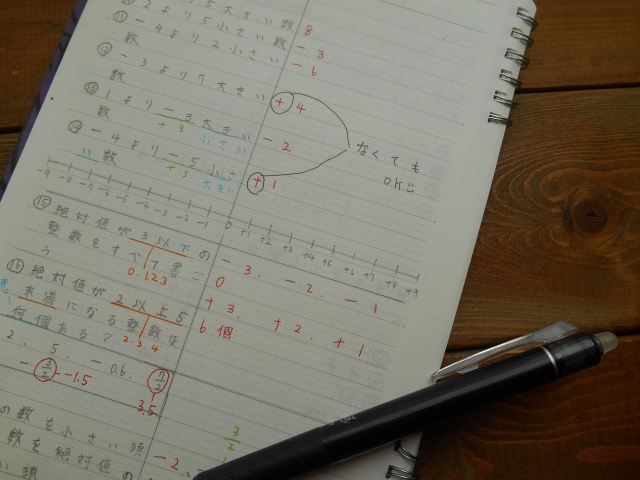 2より5大きい数 8
⑪ -4より2小さい数 -3
-6
⑫ -3より7大きい数 +4
なくても
OK
⑬ 1より-3大きい数 -2
+3 小さい
⑭ -4より-5小さい数 +1
+5 大きい
-9 -8 -7 -6 -5 -4 -3 -2 -1 0 +1 +2 +3 +4 +5 +6 +7 +8 +9
⑮ 絶対値が3以下の
整数をすべて書こう
0.1.2.3
-3. -2. -1
0
+3. +2. +1
⑯ 絶対値が2以上5
未満になる整数は
何個ある?
2.3.4
6個
2、5、-0.6、7/2
-3/2 -1.5
3.5
の数を小さい須
3/2
数を絶対値の
-2.
い須